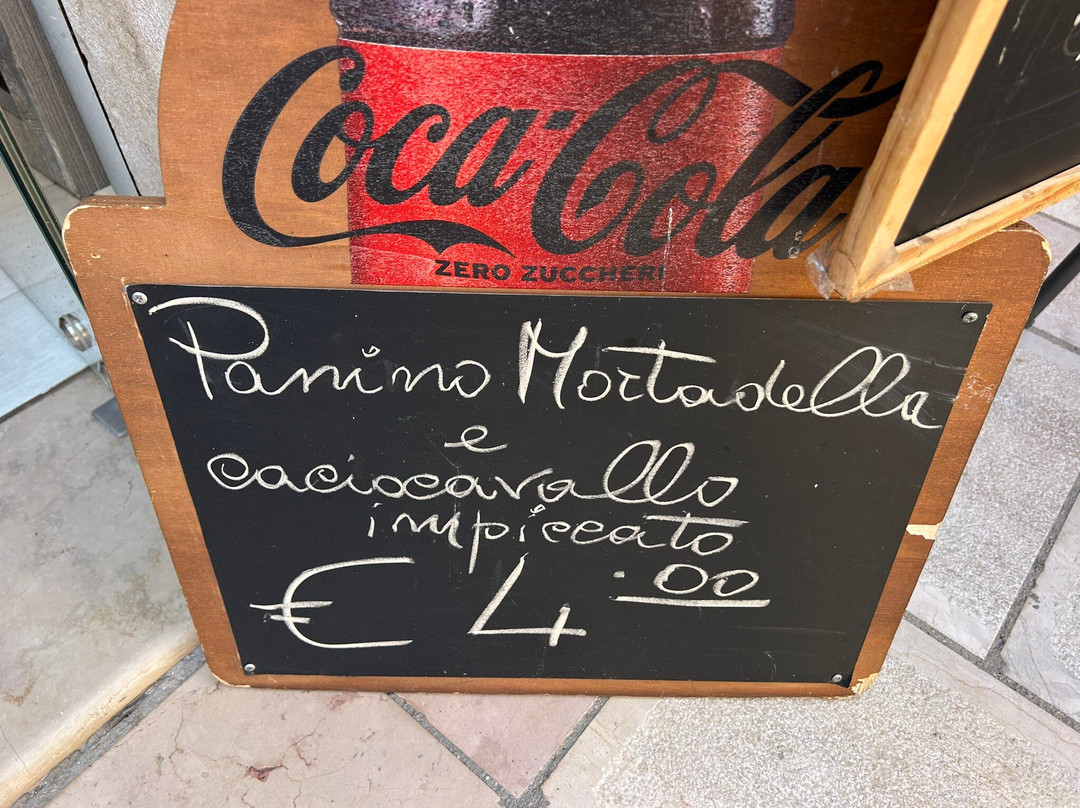 Coca-Cola
ZERO ZUCCHERI
Panino Mortadella
e
caciocavallo
impiccato
€ 4.00